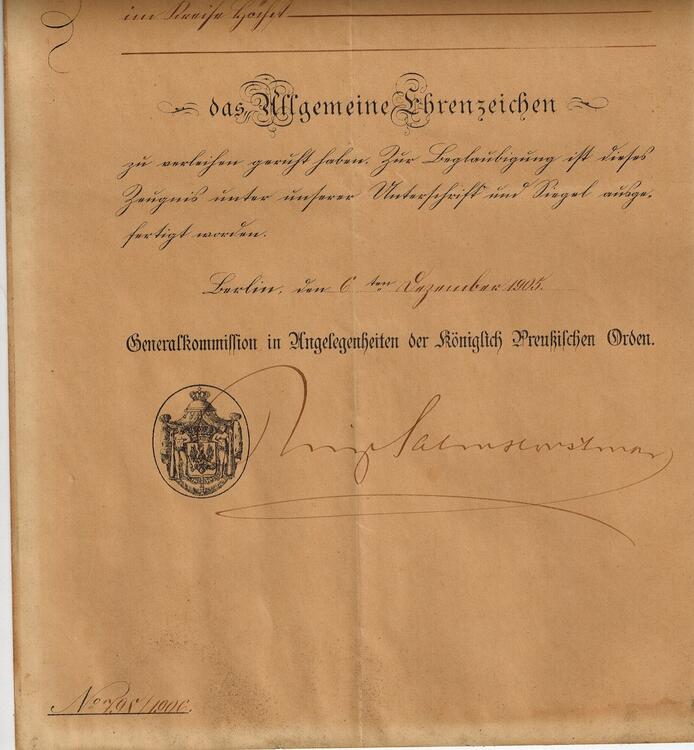 im Kreise Höchst
das Allgemeine Ehrenzeichen
zu verleihen geruht haben. Zur Beglaubigung ist dieses
Zeugnis unter unserer Unterschrift und Siegel ausge-
fertigt worden.
Berlin, den 6ten Dezember 1905.
Generalkommission in Angelegenheiten der Königlich Preußischen Orden.
Prinz Salm Horstmar